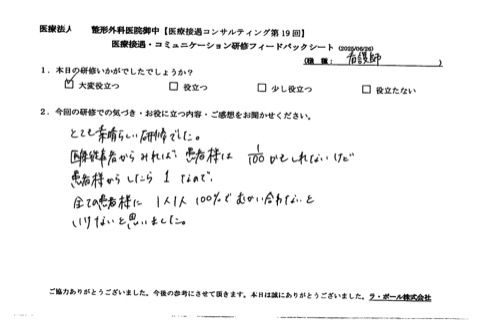 医療法人　　整形外科医院御中【医療接遇コンサルティング第19回】
医療接遇・コミュニケーション研修フィードバックシート（2025/06/26）
（職種：看護師　）
1．本日の研修いかがでしたでしょうか？
☑ 大変役立つ　□ 役立つ　□ 少し役立つ　□ 役立たない
2．今回の研修での気づき・お役に立つ内容・ご感想をお聞かせください。
とても素晴らしい研修でした。
医療従事者からみれば、患者様は 1/100かもしれないけど
患者様からしたら 1 なので、
全ての患者様に 1人1人 100%でむかい合わないと
いけないと思いました。
ご協力ありがとうございました。今後の参考にさせて頂きます。本日は誠にありがとうございました。ラ・ポール株式会社